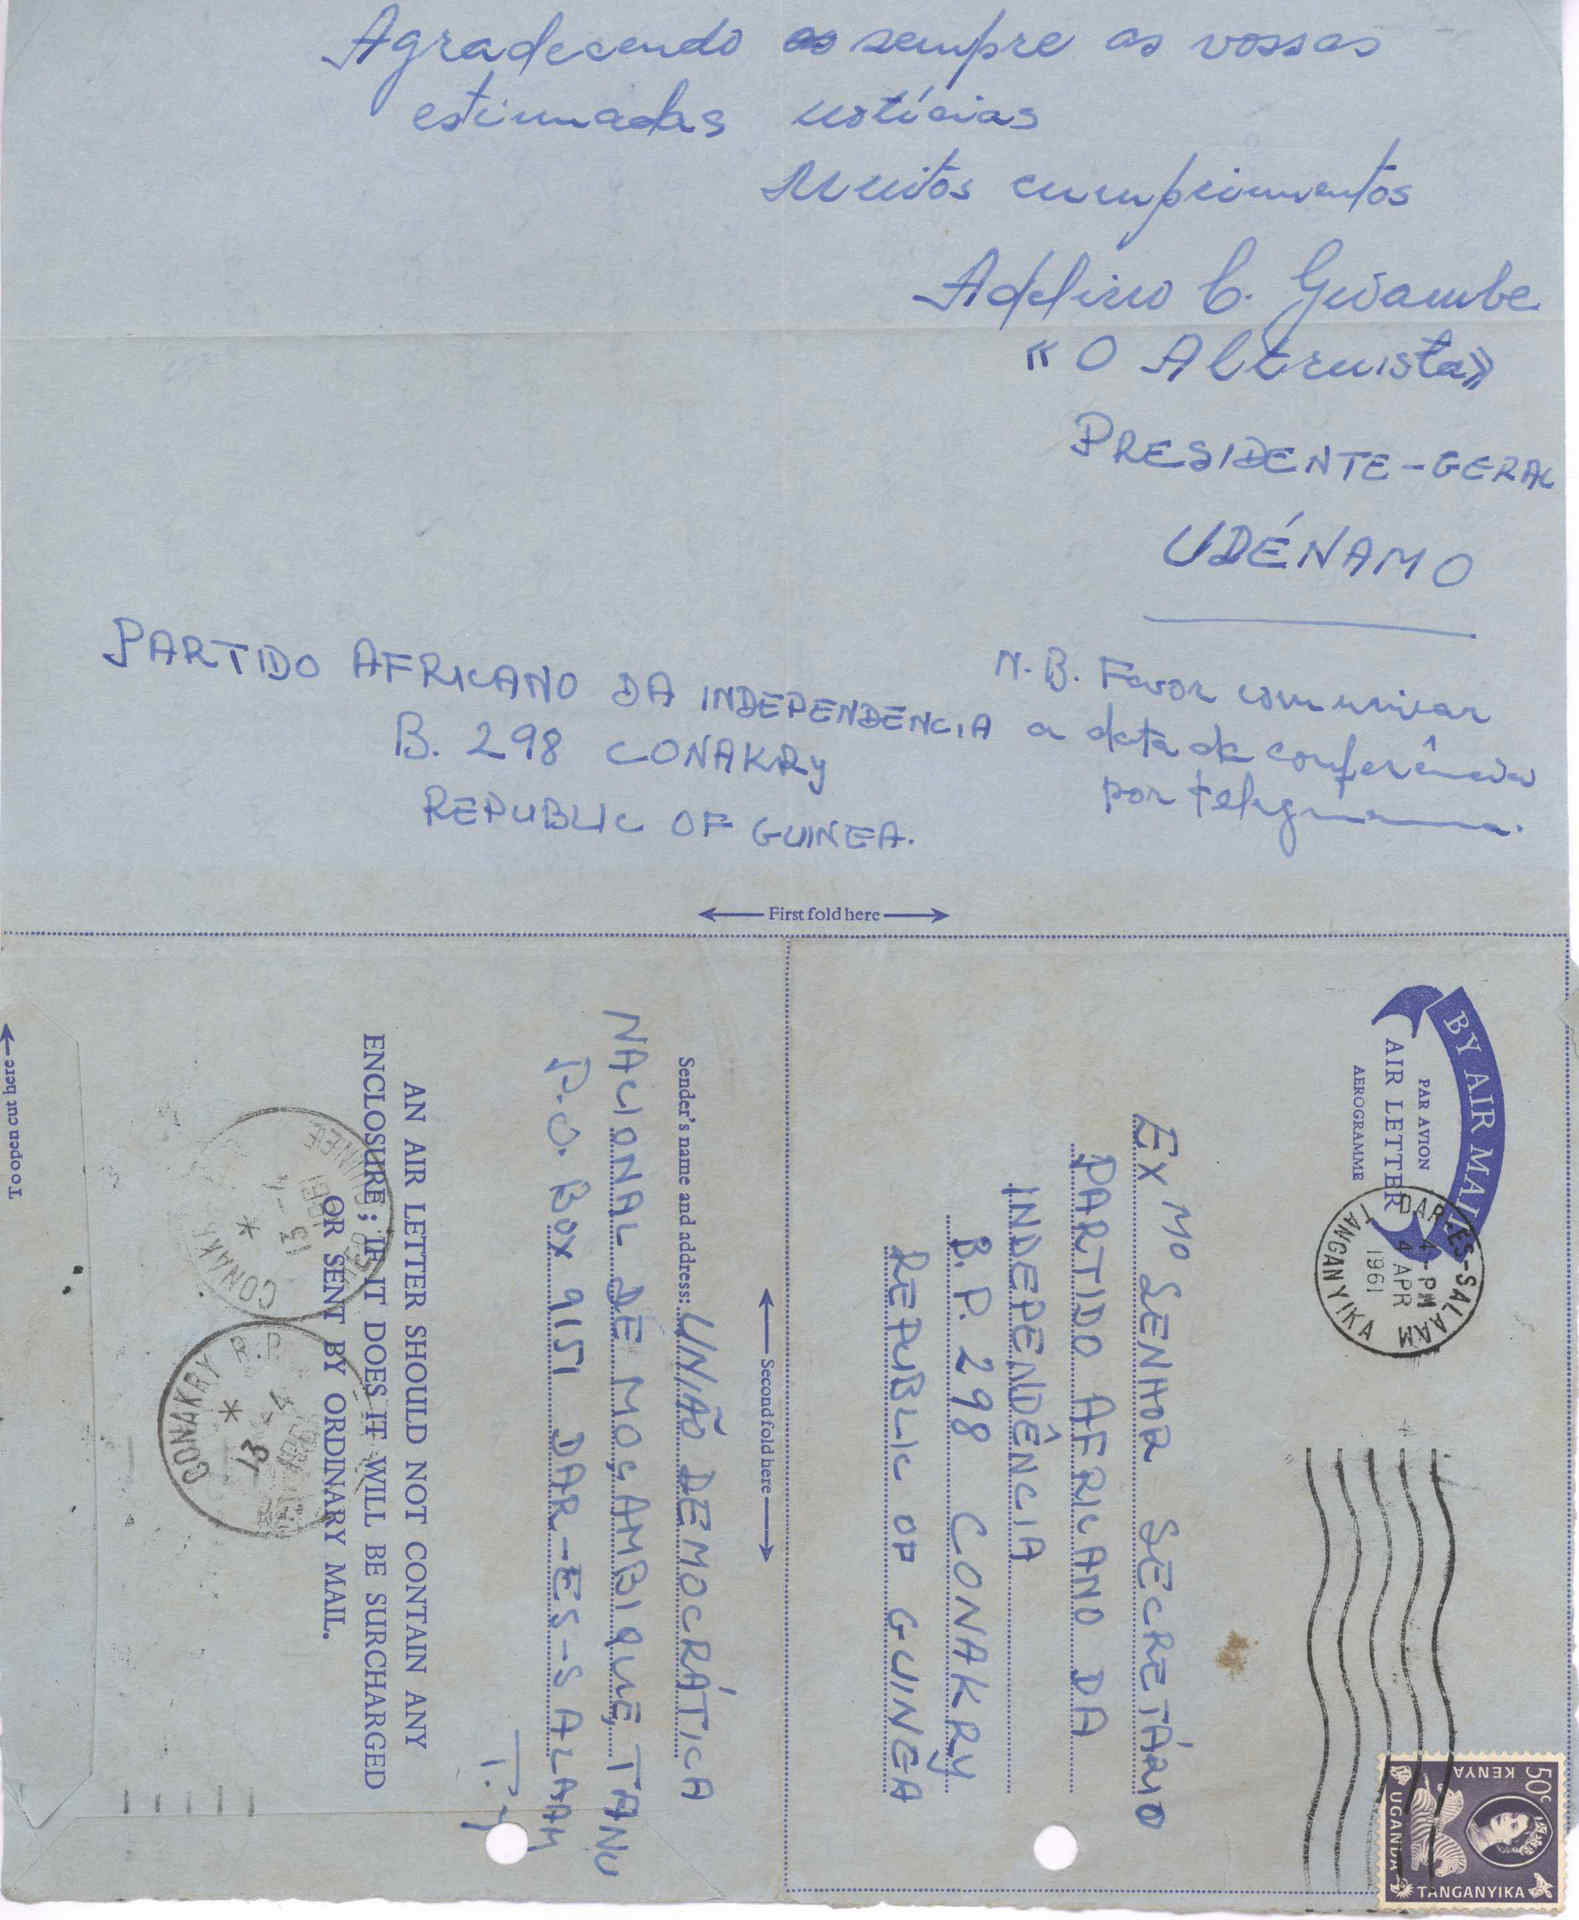 Agradecendo as sempre as vossas
estimadas notícias
Muitos cumprimentos
Adelino C. Gwambe
«O Altruista»
PRESIDENTE-GERAL
UDÉNAMO
N.B. Favor comunicar
a data da conferência
por telegrama.
PARTIDO AFRICANO DA INDEPENDENCIA
B. 298 CONAKRY
REPUBLIC OF GUINEA.
First fold here
BY AIR MAIL
PAR AVION
AIR LETTER
AEROGRAMME
DAR-ES-SALAAM
4-PM
4 APR
1961
TANGANYIKA
50c
KENYA
UGANDA
TANGANYIKA
EXMO SENHOR SECRETÁRIO
PARTIDO AFRICANO DA
INDEPENDÊNCIA
B.P. 298 CONAKRY
REPUBLIC OF GUINEA
Second fold here
Sender's name and address: UNIÃO DEMOCRÁTICA
NACIONAL DE MOÇAMBIQUE, TANU
P.O. BOX 9151 DAR-ES-SALAAM
T.y
AN AIR LETTER SHOULD NOT CONTAIN ANY
ENCLOSURE; IF IT DOES IT WILL BE SURCHARGED
OR SENT BY ORDINARY MAIL.
CONAKRY
13
CONAKRY
13
To open cut here